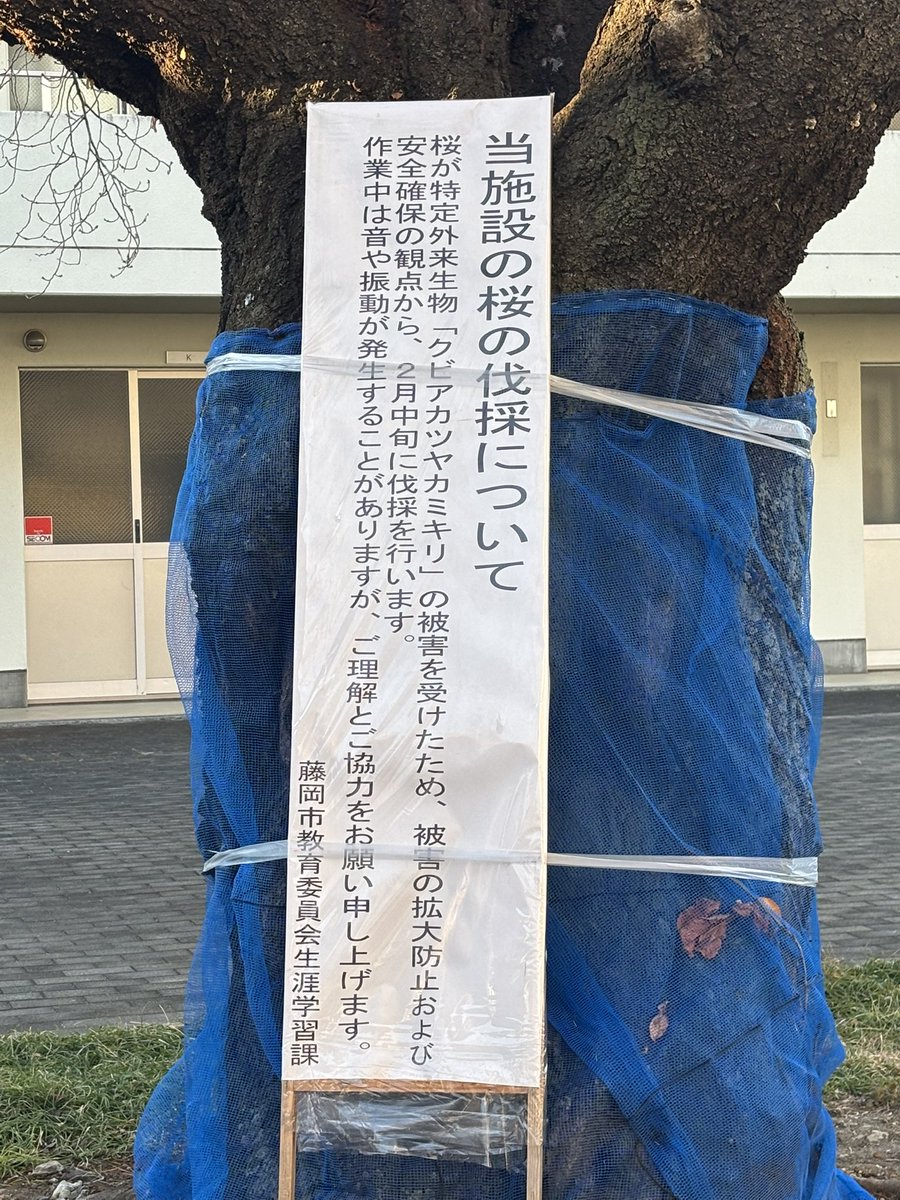 当施設の桜の伐採について
桜が特定外来生物「クビアカツヤカミキリ」の被害を受けたため、被害の拡大防止および
安全確保の観点から、２月中旬に伐採を行います。
作業中は音や振動が発生することがありますが、ご理解とご協力をお願い申し上げます。
藤岡市教育委員会生涯学習課
K
SECOM